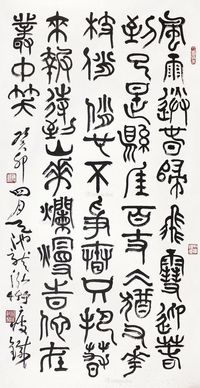 風雨送春歸飛雪迎春
到已是縣崖百丈冰猶有華
枝俏俏也不爭春只把春
來報待到山華爛漫時她在
叢中笑 癸卯四月